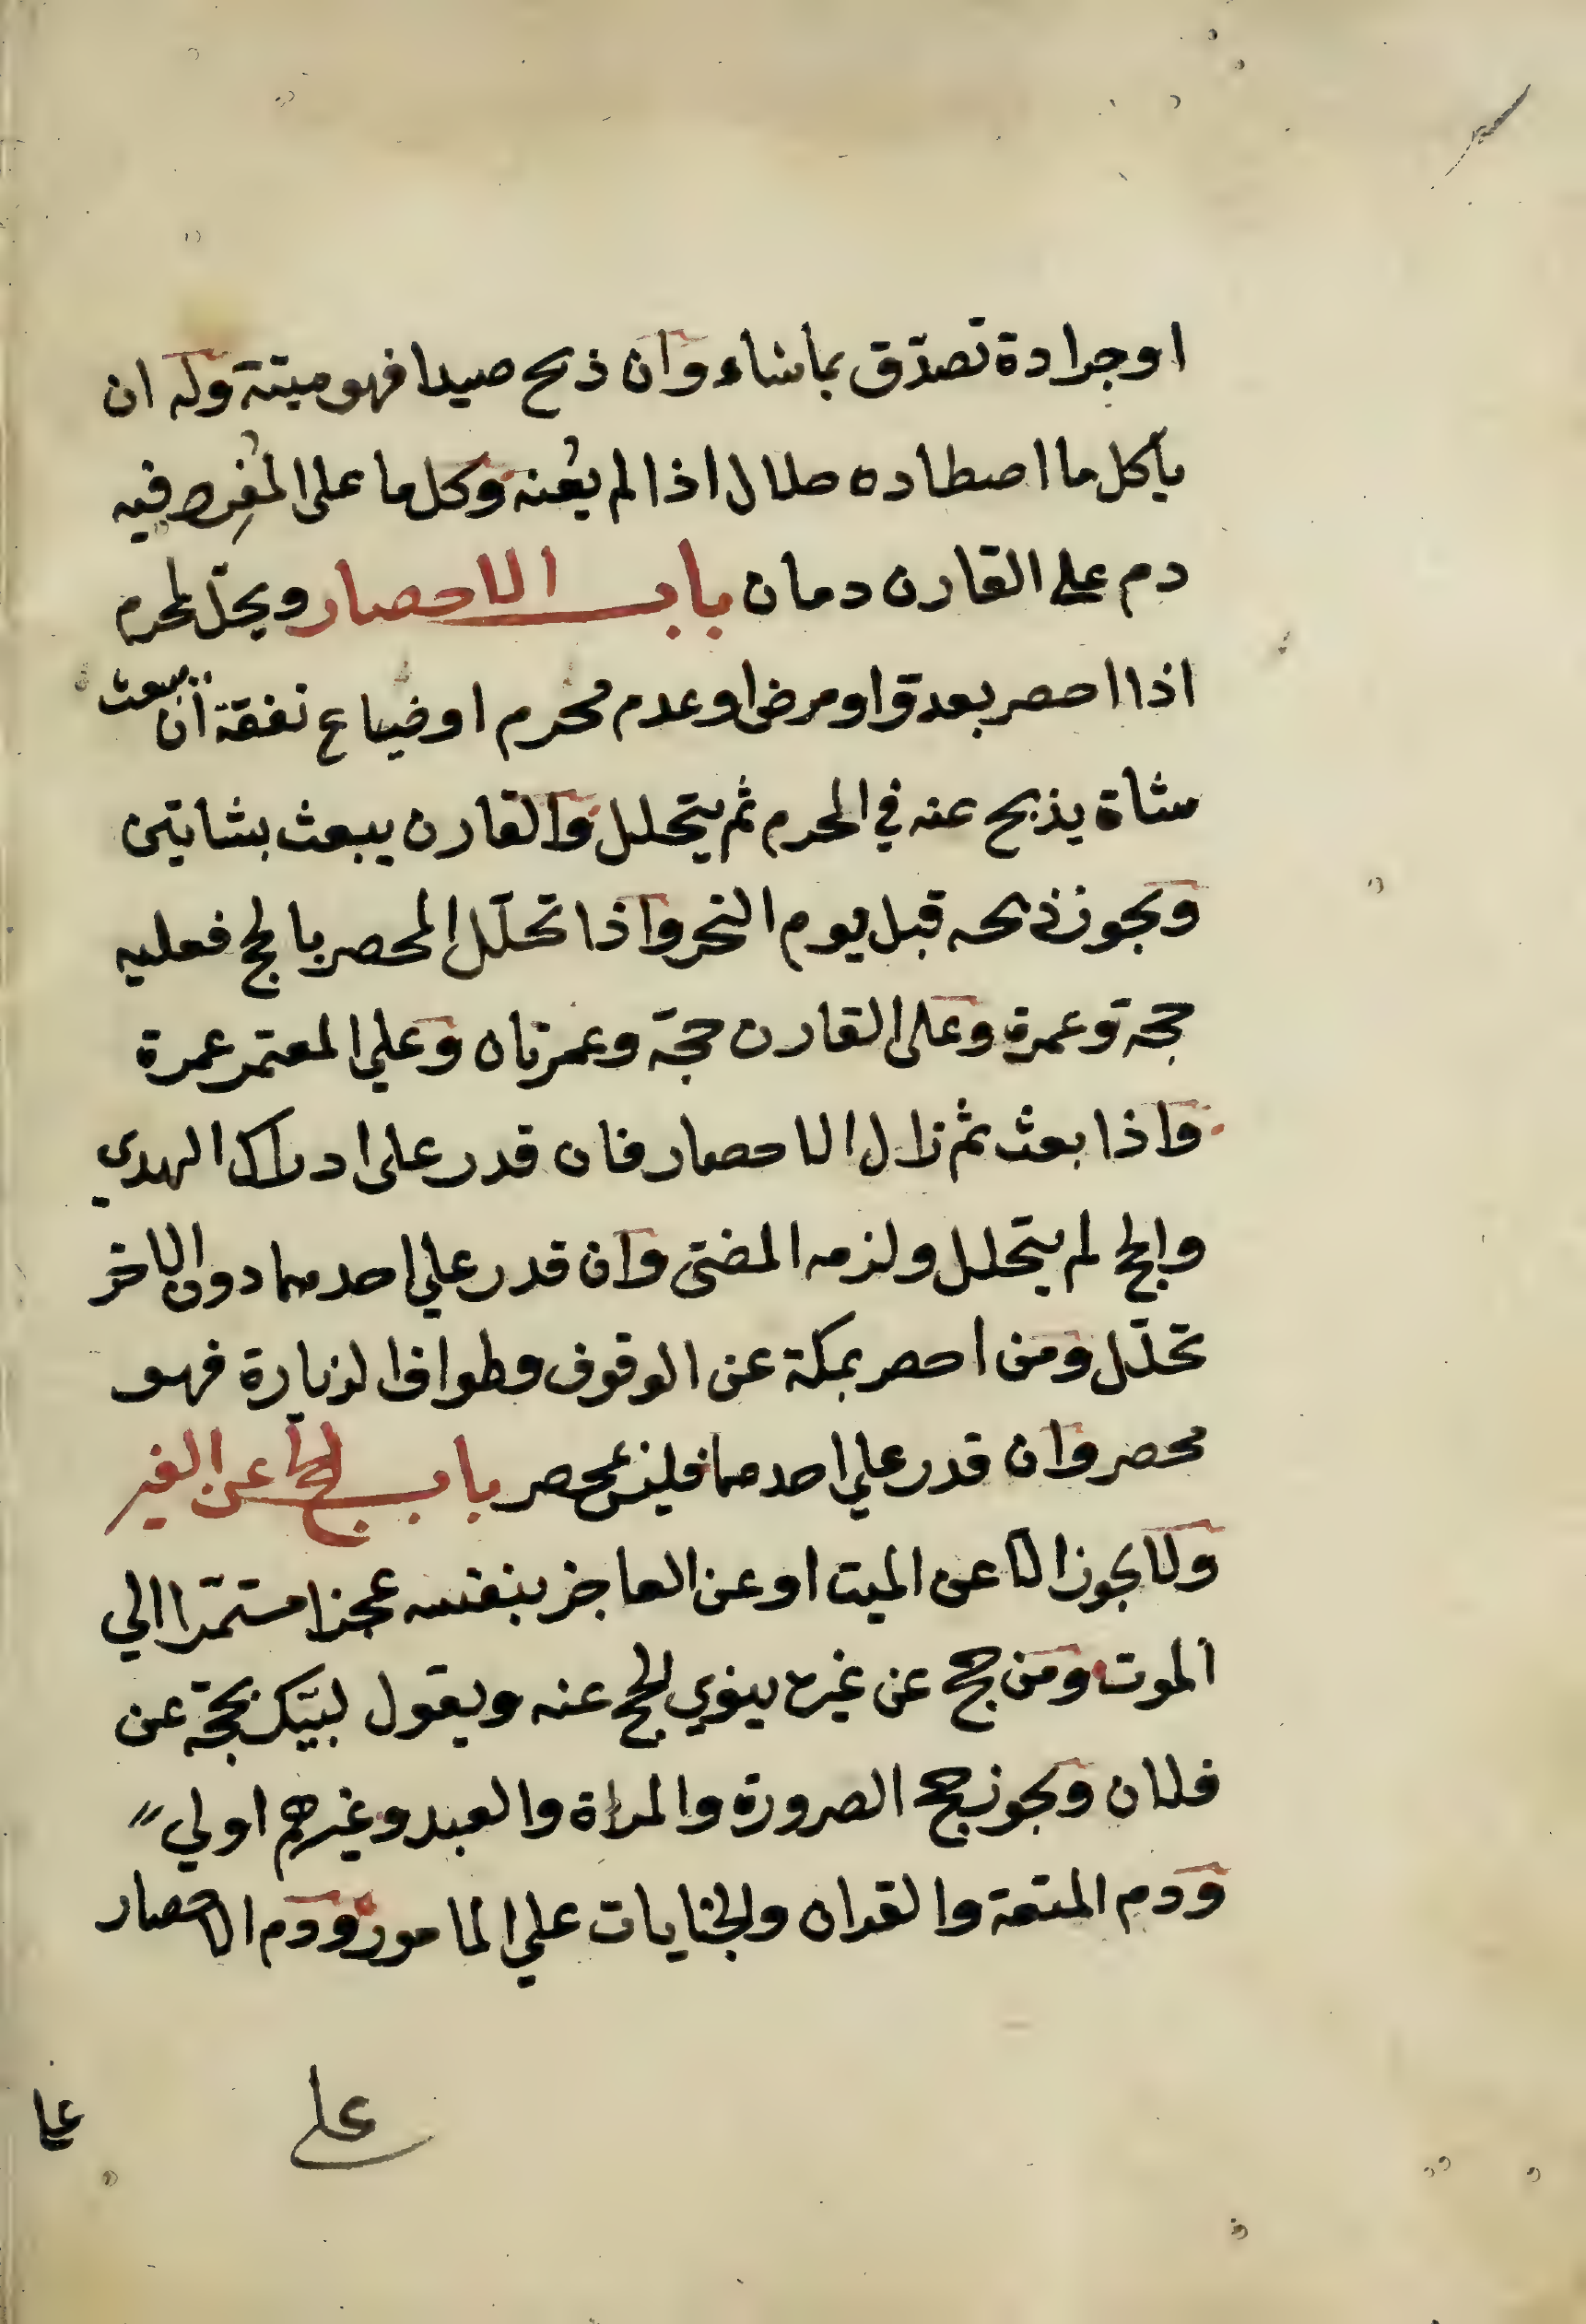 او جرادة تصدّق بما شاء وان ذبح صيدا فهو ميتة وله ان
يأكل ما اصطاده حلال اذا لم يُعنه وكل ما على المُفرِد فيه
دم على القارن دمان باب الاحصار ويحلّ المحرم
اذا احصر بعدوّ او مرض او عدم محرم او ضياع نفقة ان يبعث
شاة يذبح عنه في الحرم ثم يتحلل والقارن يبعث بشاتين
ويجوز ذبحه قبل يوم النحر واذا تحلّل المحصر بالحج فعليه
حجة وعمرة وعلى القارن حجّة وعمرتان وعلي المعتمر عمرة
واذا بعث ثم زال الاحصار فان قدر على ادراك الهدي
والحج لم يتحلل ولزمه المضى وان قدر علي احدهما دون الاخر
تحلّل ومن احصر بمكة عن الوقوف وطواف الزيارة فهو
محصر وان قدر علي احدهما فليس بمحصر باب الحج عن الغير
ولا يجوز الا عن الميت او عن العاجز بنفسه عجزا مستمرّا الي
الموت ومن حج عن غيره ينوي الحج عنه ويقول لبّيك بحجّة عن
فلان ويجوز حج الصرورة والمراة والعبد وغيرهم اولي
ودم المتعة والقران والجنايات علي المامور ودم الاحصار
على